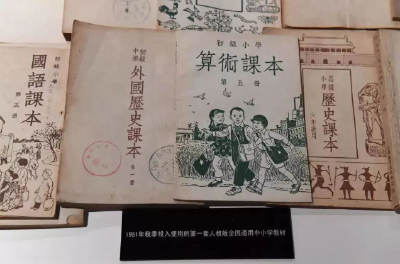 初級小學
國語課本
第五冊
初級中學
外國歷史課本
第一冊
初級小學
算術課本
第五冊
高級小學
歷史課本
1951年秋季投入使用的第一套人教版全国通用中小学教材